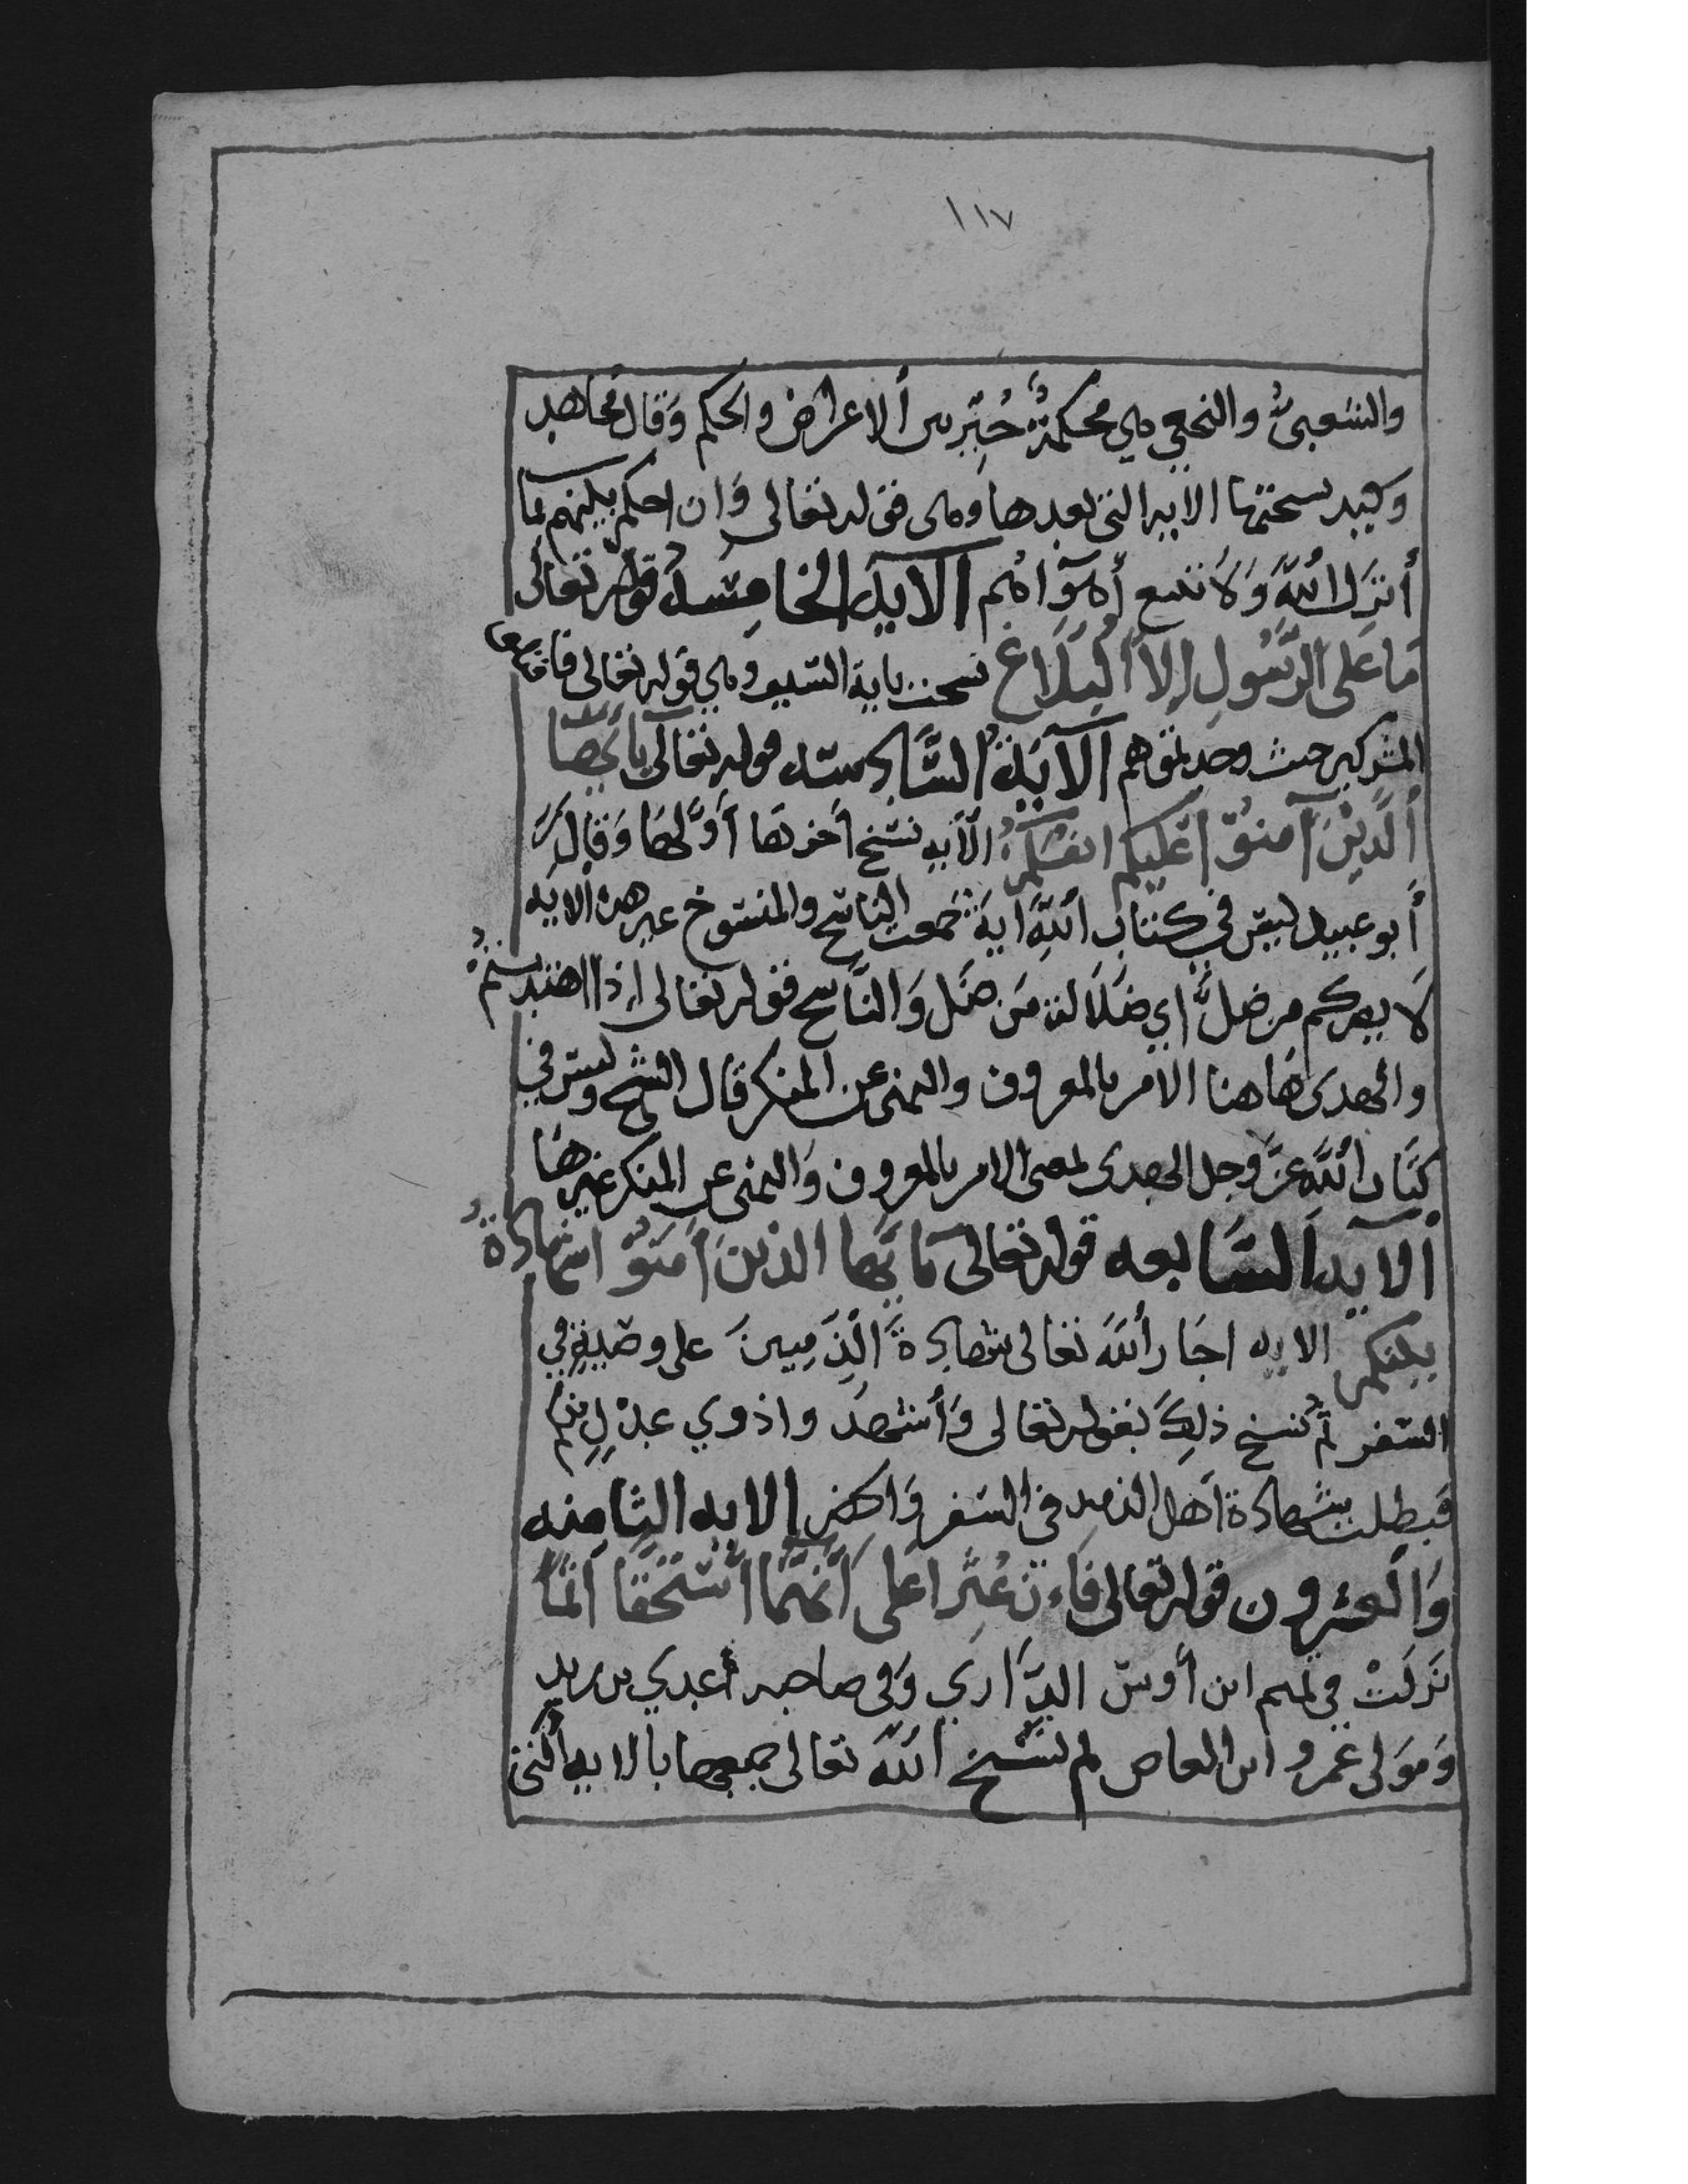 ١١٧
والشعبيُّ والنخعي هي محكمةٌ خُيِّر بين ألاعراض والحكم وَقال مجاهد
وكيد نسختها الايه التي بعدها وهى فقوله تعالى وَان احكم بينهم بما
أنزَل اللهُ وَلَا تتبع أهوَآاهُم الايه الخامِسه قوله تعالى
مَا عَلى الرَّسُولِ إلاّ ألبلَاغ نسخت باية السيف وهي قوله تعالى فاقتلوا
المشركين حيث وجدتموهم الآيَةُ السَّادسه قوله تعَالى يا أيّهَا
ألّذينَ آمنوْا عليكم انفسكم الآيه نسَخ أخرتها أوَّلهَا وَقَالَ
أبو عبيد ليسَ في كتاب اللهِ آيةَ جمعت الناسخ والمنسوخ غير هذه الايه
لَا يضركم من ضلَّ أي ضلَالة مَن ضَل وَالنَّاسخ فقوله تعالى إذا اهتديتم
والهدى هَاهنا الامر بالمعروف والنهى عن المنكر قال الشيخ وليس في
كتَاب اللهِ عزّ وجل الهدى بمعنى الامر بالمعروف وَالنهى عن المنكر غيرهَا
الايه السَّابعه قوله تعَالى يا أيها الذينَ آمَنوْا شهادةُ
بينكم الايه اجَاز أللهُ تعالى شهادةَ الذمِيينَ على وصيةٍ في
السَفر ثم نسخ ذلِكَ بقوله تعالى وَأشهدُ واذوي عدْلٍ منكم
فبطلت شهادة أهل الذمه في السَفر وَالحضر الايه الثامِنه
وَالعشرون قوله تعالى فَاءن عُثِرا عَلى أنهمَا أستحَقا اثمًا
نزلَتْ في تميم ابن أوس الدَّاري وَفي صاحبه أعدي بن زيد
وَمَوَلى عَمرو ابن العاص ثم نَسَخ أللهُ تعالى جميعها بالايه التي